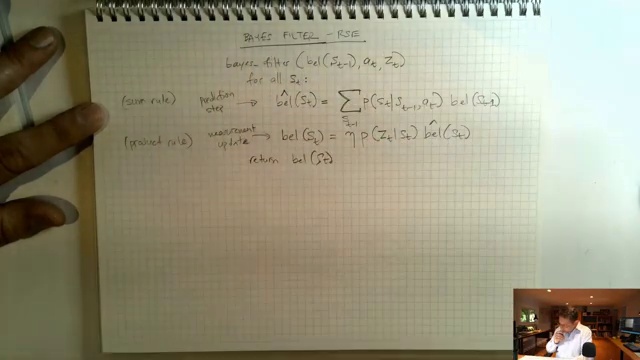 BAYES FILTER - RSE
bayes-filter (bel(S_{t-1}), a_t, z_t)
for all S_t:
(sum rule) prediction step → b̂el(S_t) = ∑_{S_{t-1}} p(S_t | S_{t-1}, a_t) bel(S_{t-1})
(product rule) measurement update → bel(S_t) = η p(z_t | S_t) b̂el(S_t)
return bel(S_t)